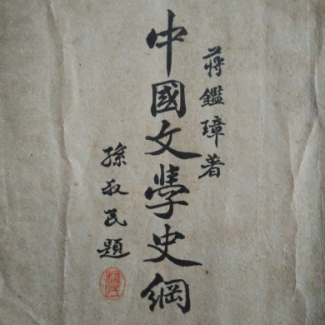 蔣鑑璋著
中國文學史綱
孫叔民題